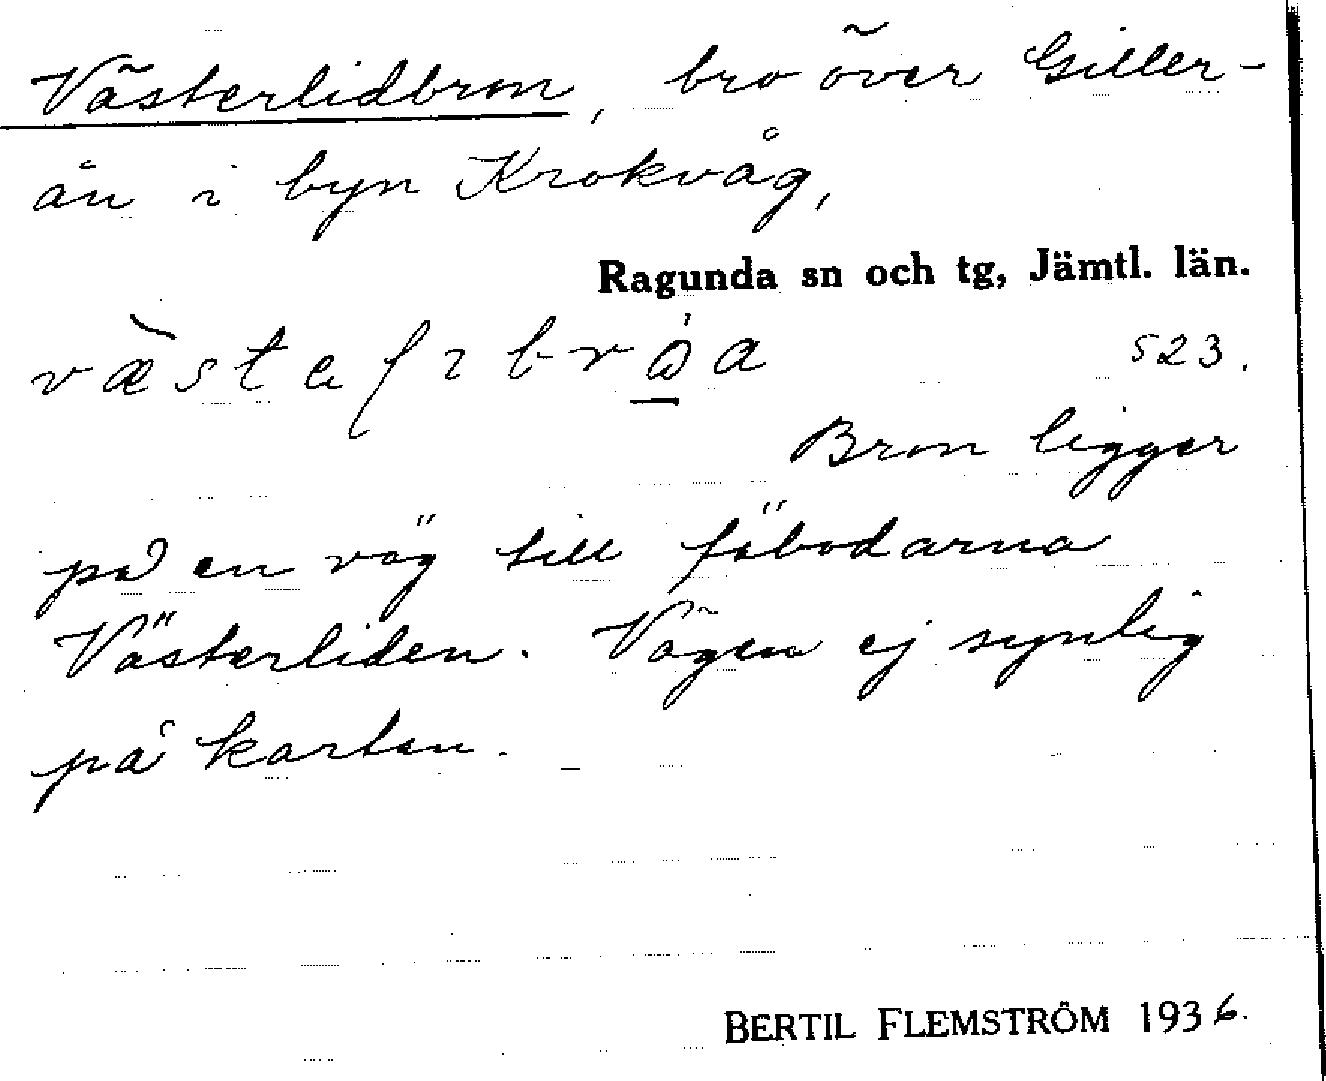 Västerlidbron, bro över Giller-
ån i byn Krokvåg,
Ragunda sn och tg, Jämtl. län.
523.
Bron ligger
på en väg till fäbodarna
Västerliden. Vägen ej synlig
på kartan.
BERTIL FLEMSTRÖM 1936.